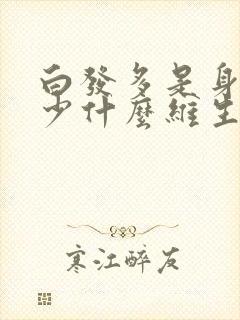 白發多是身
少什麼維生
寒江醉友